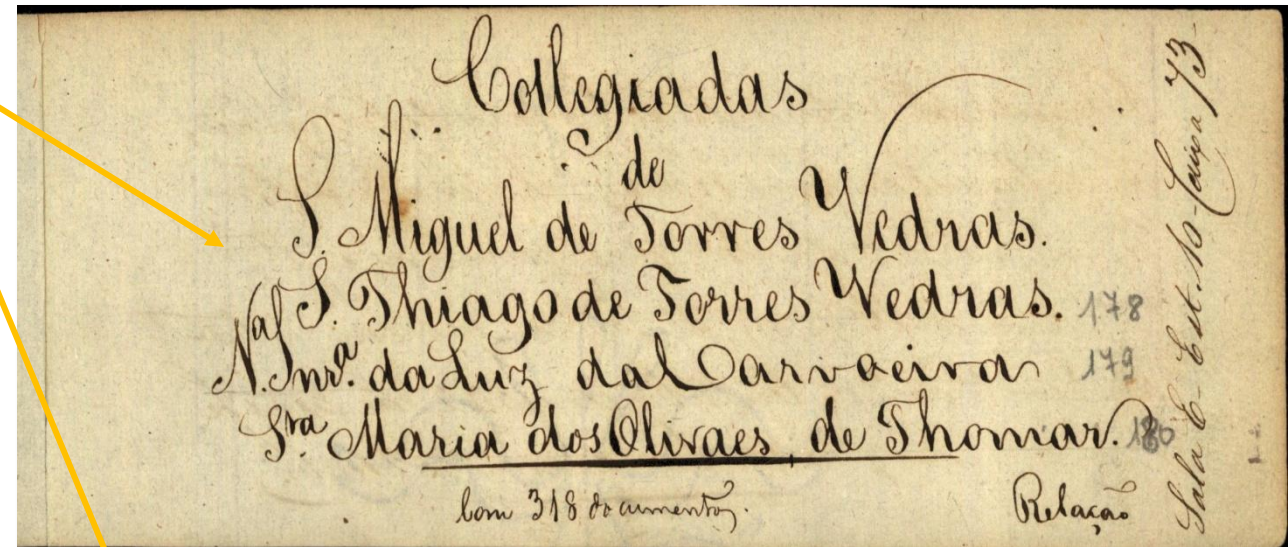 Collegiadas
de
S. Miguel de Torres Vedras.
S. Thiago de Torres Vedras. 178
N. Snrª. da Luz da Carvoeira 179
Sta Maria dos Olivaes de Thomar. 180
Com 318 documentos.
Relação
Sala C- Est. 10- Caixa 73-